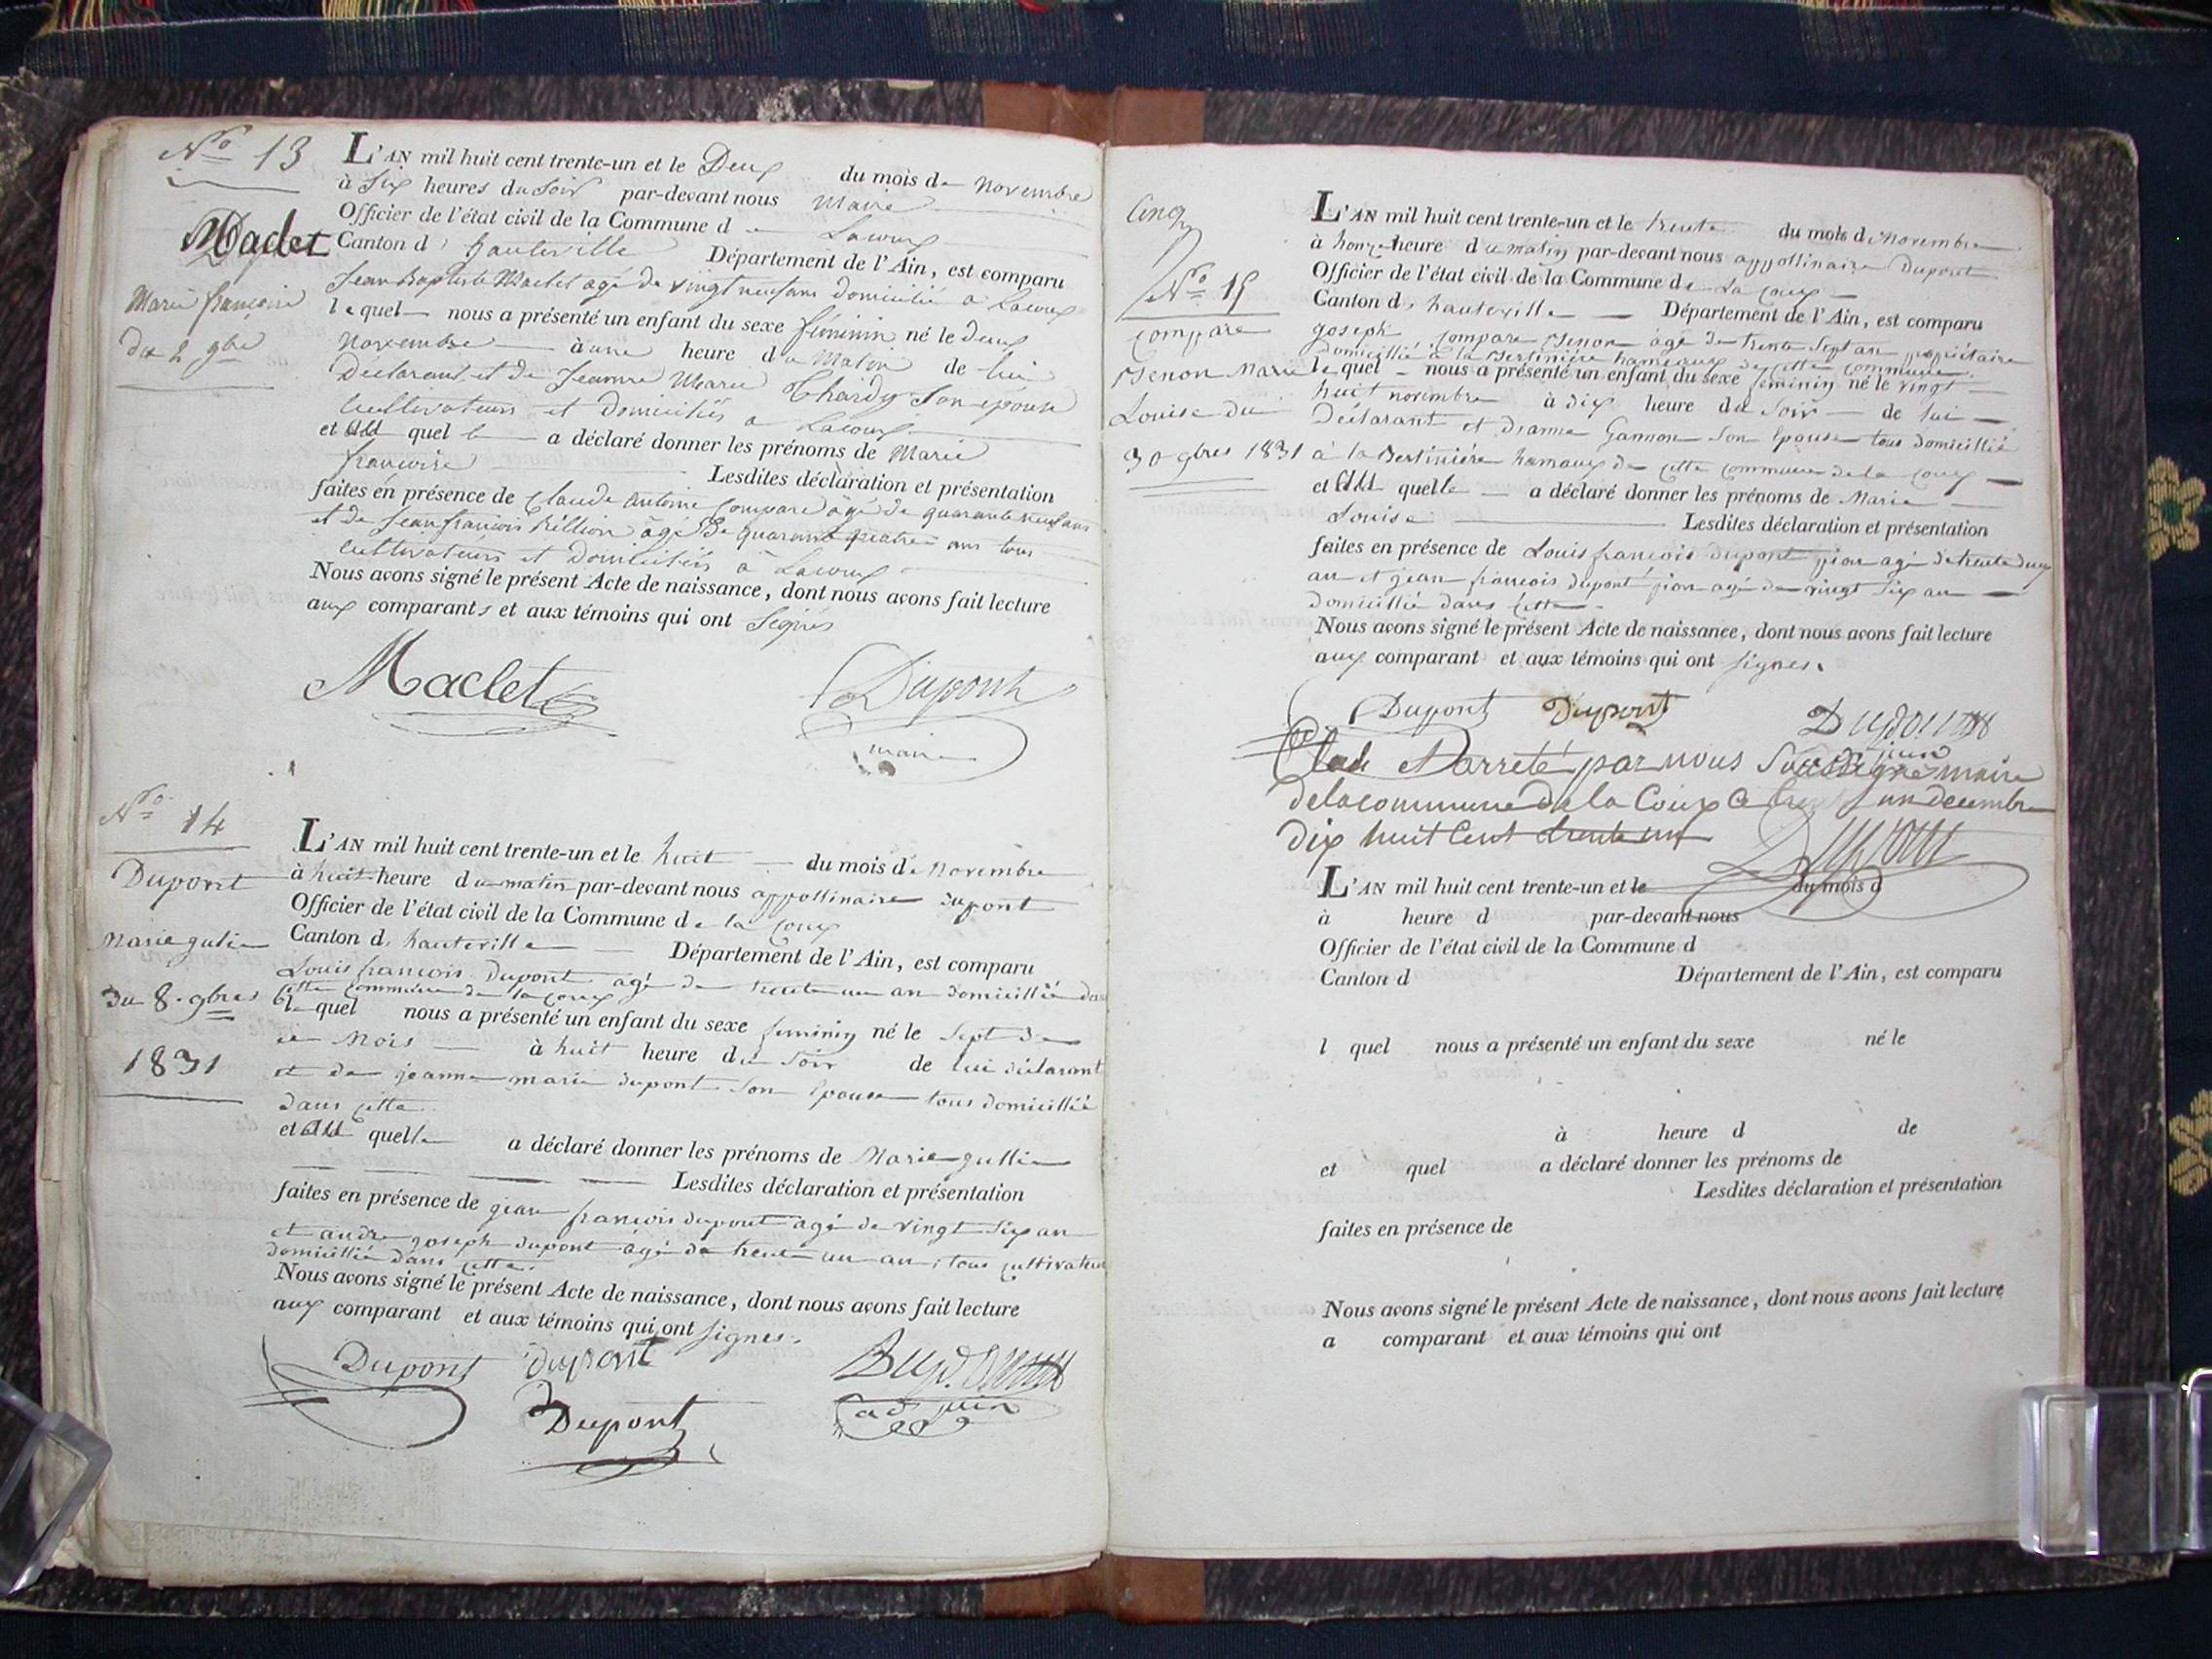 No 13
Maclet
Marie françoise
du 2 9bre
L'AN mil huit cent trente-un et le Deux du mois de Novembre
à Six heures du Soir par-devant nous Maire
Officier de l'état civil de la Commune d Lacoux
Canton d'hauteville Département de l'Ain, est comparu
Jean Baptiste Maclet agé de vingt neuf ans domicilié a Lacoux
lequel nous a présenté un enfant du sexe féminin né le deux
Novembre à une heure du Matin de lui
Déclarant et de Jeanne Marie Chardy son epouse
Cultivateurs et Domiciliés a Lacoux
et quel a déclaré donner les prénoms de Marie
françoise Lesdites déclaration et présentation
faites en présence de Claude Antoine Compare âgé de quarante neuf ans
et de Jean françois hillion âgé De quarante quatre ans tous
Cultivateurs et Domiciliés à Lacoux
Nous avons signé le présent Acte de naissance, dont nous avons fait lecture
aux comparants et aux témoins qui ont Signés
Maclet Dupont
maire
No 14
Dupont
Marie gulie
du 8. 9bres
1831
L'AN mil huit cent trente-un et le huit du mois de Novembre
à huit heure du matin par-devant nous appollinaire dupont
Officier de l'état civil de la Commune de la Coux
Canton d, hauteville Département de l'Ain, est comparu
Louis françois Dupont agé de trente un an domicillié dans
cette commune de la Coux
lequel nous a présenté un enfant du sexe feminin né le Sept De
ce Mois à huit heure du Soir de lui déclarant
et de jeanne marie dupont Son Epouse tous domicillié
dans cette
et quelle a déclaré donner les prénoms de Marie gullie
Lesdites déclaration et présentation
faites en présence de gean françois dupont agé de vingt Six an
et andre joseph dupont agé de trente un an; tous cultivateur
domicillié dans cette.
Nous avons signé le présent Acte de naissance, dont nous avons fait lecture
aux comparant et aux témoins qui ont signes.
Dupont Dupont
adjoin
Dupont
Cinq
No 15
Compare
genon Marie
Louise du
30 9bres 1831
L'AN mil huit cent trente-un et le trente du mois de Novembre
à honze heure du matin par-devant nous appollinaire Dupont
Officier de l'état civil de la Commune de La Coux
Canton d, hauteville Département de l'Ain, est comparu
goseph Compare genon agé de trente Sept an propriétaire
Domicillié à la Bertinière hameaux de cette commune.
lequel nous a présenté un enfant du sexe feminin né le vingt
huit novembre à dix heure du Soir de lui
Déclarant et Jeanne Gannon Son Epouse tous domicillié
à la Bertinière hamaux de cette commune de la Coux
et quelle a déclaré donner les prénoms de Marie
Louise Lesdites déclaration et présentation
faites en présence de Louis françois dupont agé de trente deux
an et jean françois dupont agé de vingt Six an
domicillié dans cette
Nous avons signé le présent Acte de naissance, dont nous avons fait lecture
aux comparant et aux témoins qui ont signes.
Dupont Dupont
Clos & arreté par nous Soussigné maire
de la commune de la Coux Ce trente un decembre
dix huit Cent trente un
L'AN mil huit cent trente-un et le du mois d
à heure d par-devant nous
Officier de l'état civil de la Commune d
Canton d Département de l'Ain, est comparu
l quel nous a présenté un enfant du sexe né le
à heure d de
et quel a déclaré donner les prénoms de
Lesdites déclaration et présentation
faites en présence de
Nous avons signé le présent Acte de naissance, dont nous avons fait lecture
a comparant et aux témoins qui ont